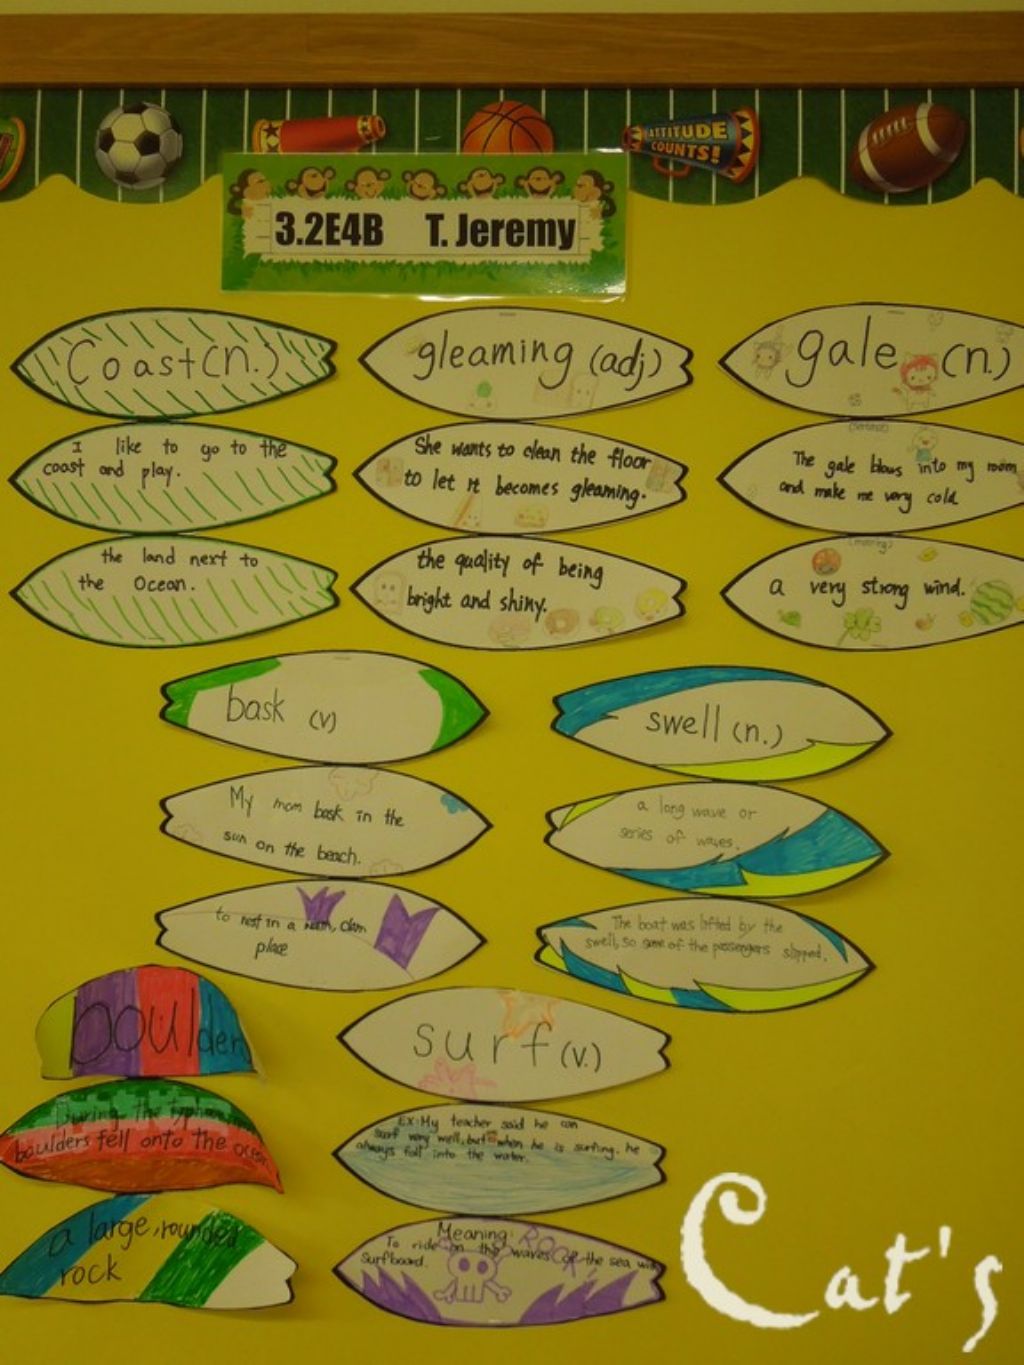 ATTITUDE
COUNTS!
3.2E4B T. Jeremy
Coast (n.)
I like to go to the
coast and play.
the land next to
the Ocean.
gleaming (adj)
She wants to clean the floor
to let it becomes gleaming.
the quality of being
bright and shiny.
gale (n.)
(sentence)
The gale blows into my room
and make me very cold
(meaning)
a very strong wind.
bask (v)
My mom bask in the
sun on the beach.
to rest in a warm, clam
place
swell (n.)
a long wave or
series of waves.
The boat was lifted by the
swell, so some of the passengers slipped.
boulder
During the typhoon
boulders fell onto the ocean
a large, rounded
rock
surf (v.)
Ex: My teacher said he can
surf very well, but when he is surfing, he
always fall into the water.
Meaning:
To ride on the waves of the sea with
Surfboard.
ROCK
Cat's